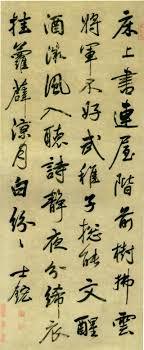 床上書連屋階前樹拂雲
將軍不好武稚子總能文醒
酒微風入聽詩靜夜分絺衣
挂蘿薜涼月白紛〻士鋐